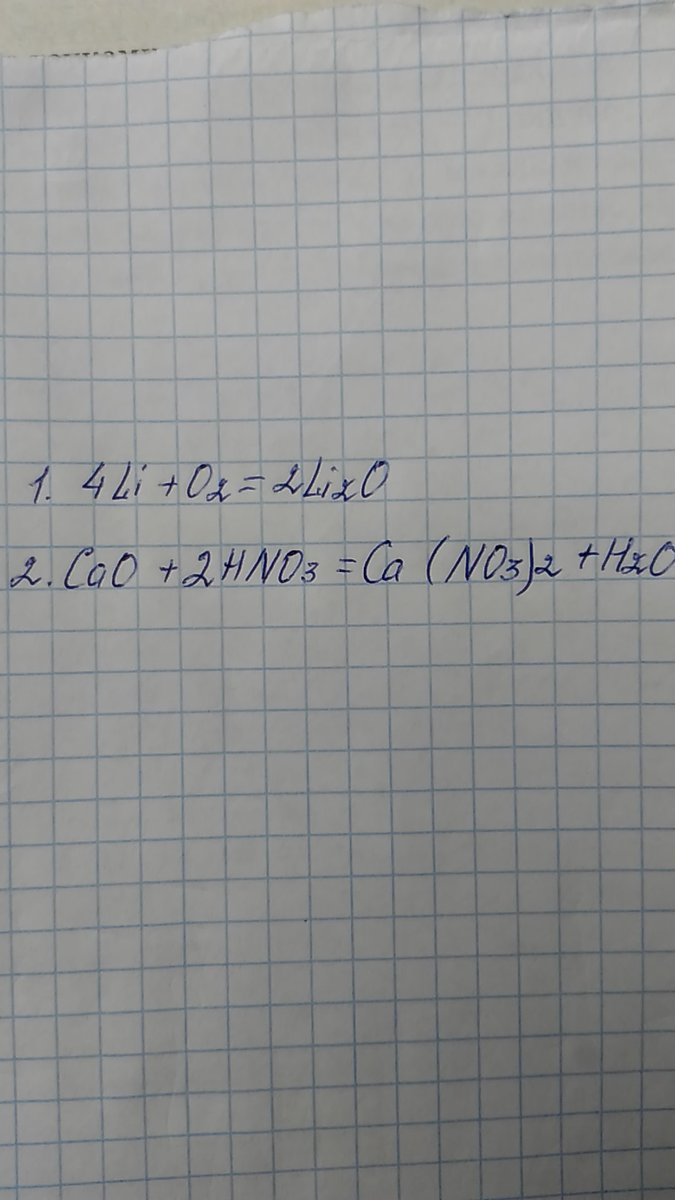 1. 4Li + O2 = 2Li2O
2. CaO + 2HNO3 = Ca (NO3)2 + H2O